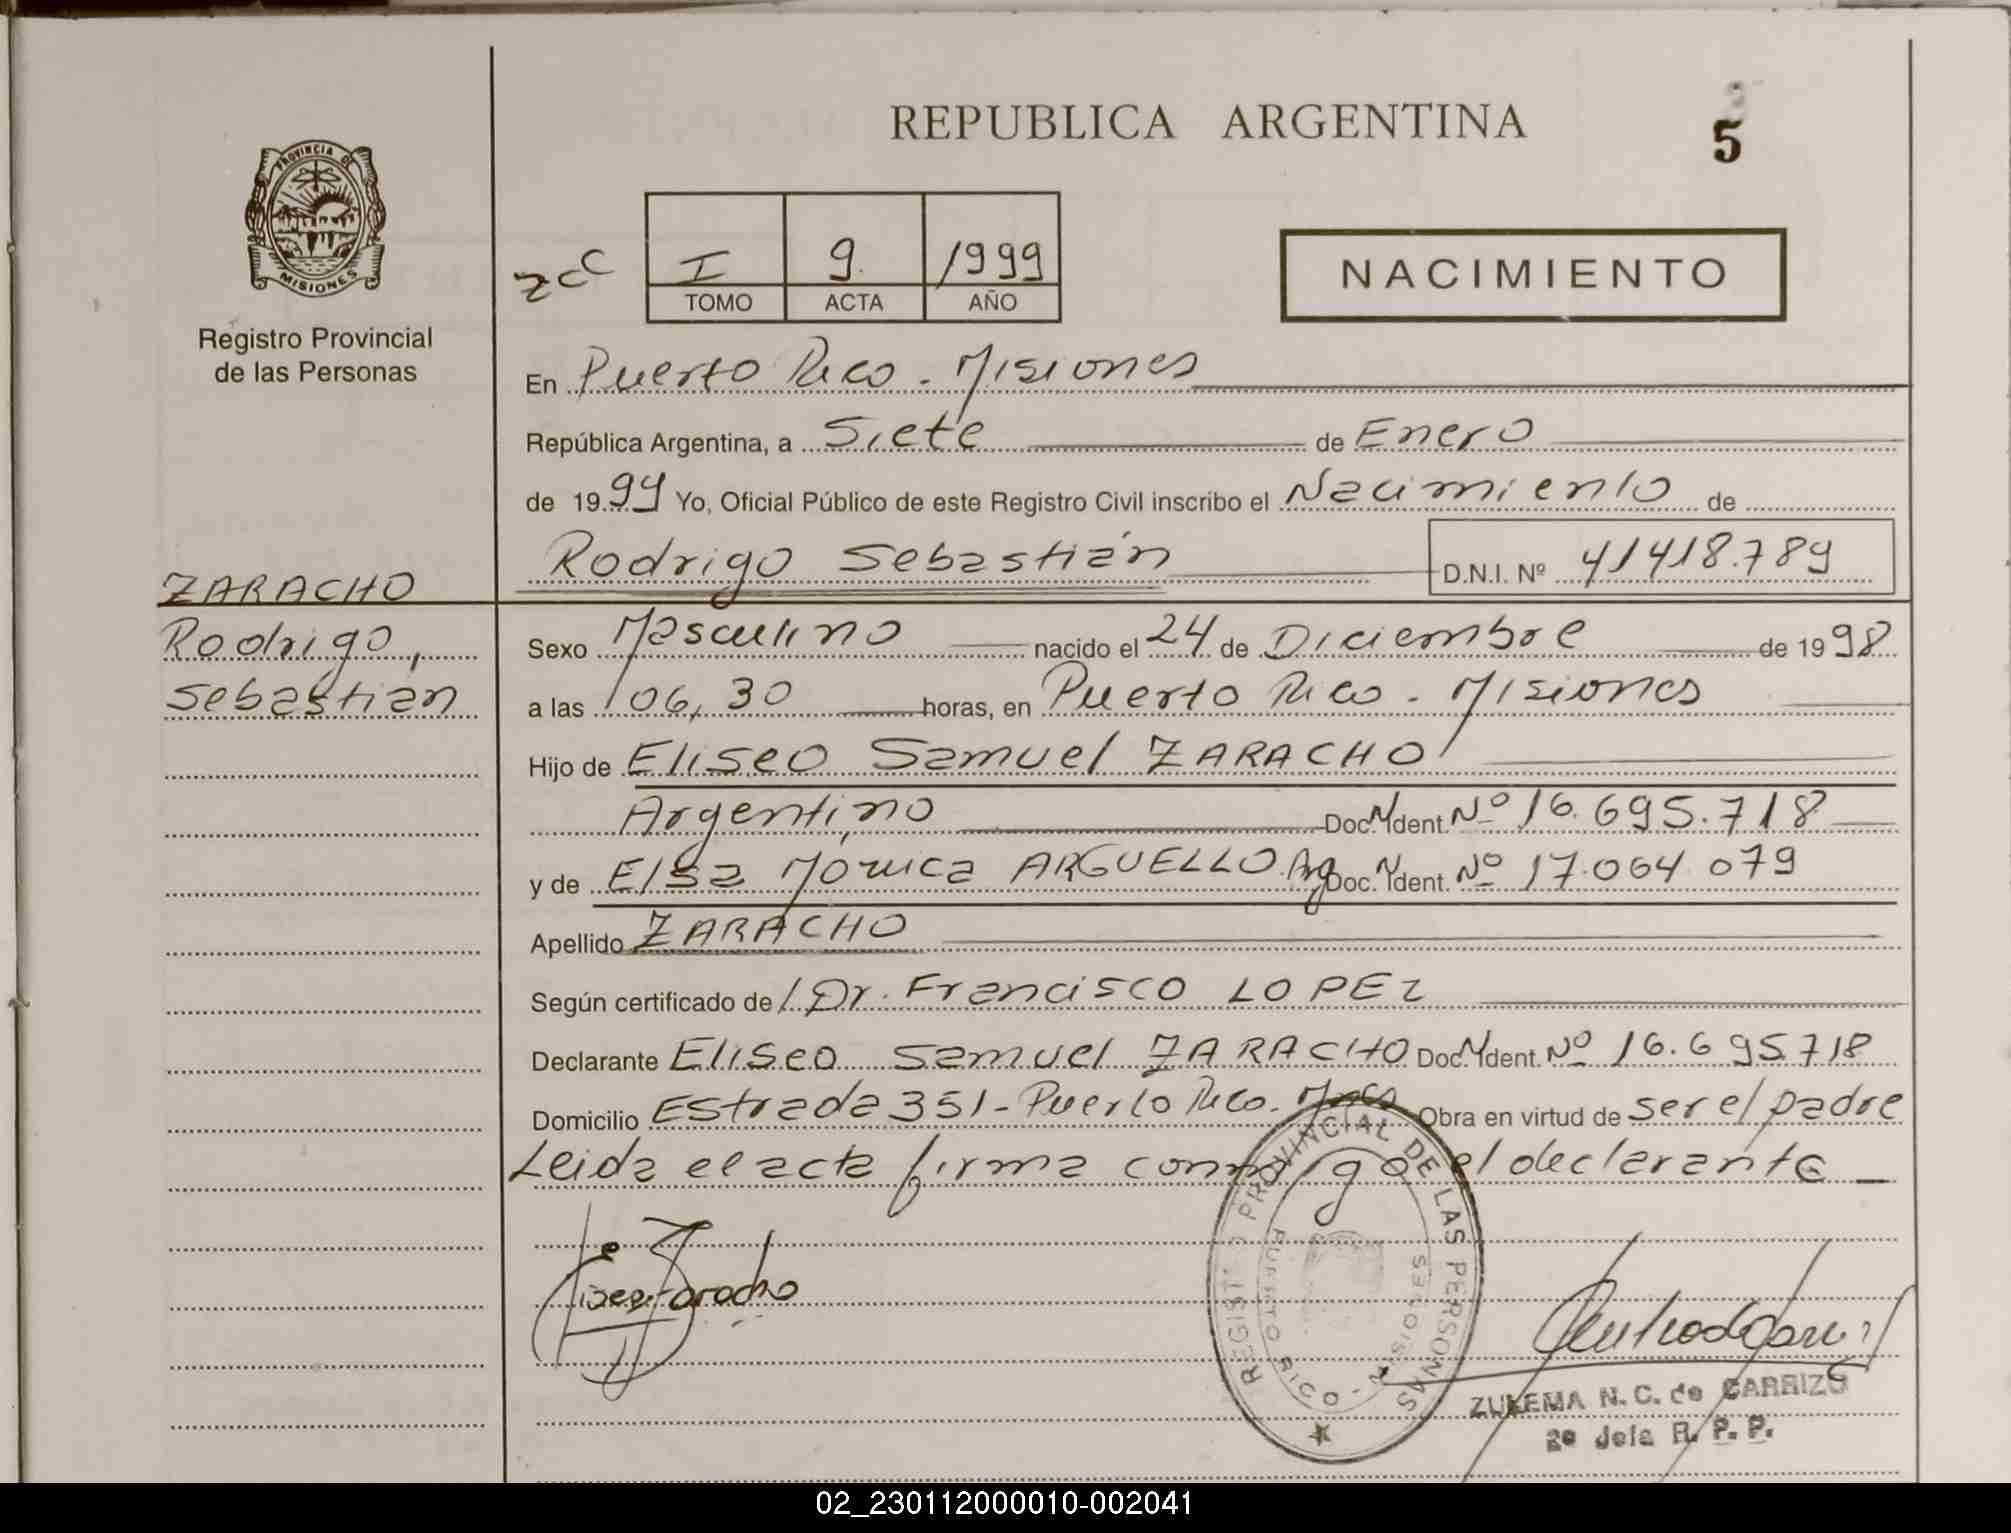 REPUBLICA ARGENTINA
5
PROVINCIA DE
MISIONES
Registro Provincial
de las Personas
zcc
I 9 1999
TOMO ACTA AÑO
NACIMIENTO
En Puerto Rico - Misiones
República Argentina, a Siete de Enero
de 1999 Yo, Oficial Público de este Registro Civil inscribo el Nacimiento de
ZARACHO
Rodrigo,
Sebastián
Rodrigo Sebastián D.N.I. Nº 41418.789
Sexo Masculino nacido el 24 de Diciembre de 1998
a las 06,30 horas, en Puerto Rico - Misiones
Hijo de Eliseo Samuel ZARACHO
Argentino Doc. Ident. Nº 16.695.718
y de Elsa Mónica ARGUELLO Arg Doc. Ident. Nº 17.064.079
Apellido ZARACHO
Según certificado de Dr. Francisco LOPEZ
Declarante Eliseo Samuel ZARACHO Doc. Ident. Nº 16.695.718
Domicilio Estrada 351 - Puerto Rico. Mnes Obra en virtud de ser el padre
Leida el acta firma conmigo el declarante
REGISTRO PROVINCIAL DE LAS PERSONAS
PUERTO RICO - MISIONES
ZULEMA N. C. de CARRIZO
2º Jefa R. P. P.
02_230112000010-002041